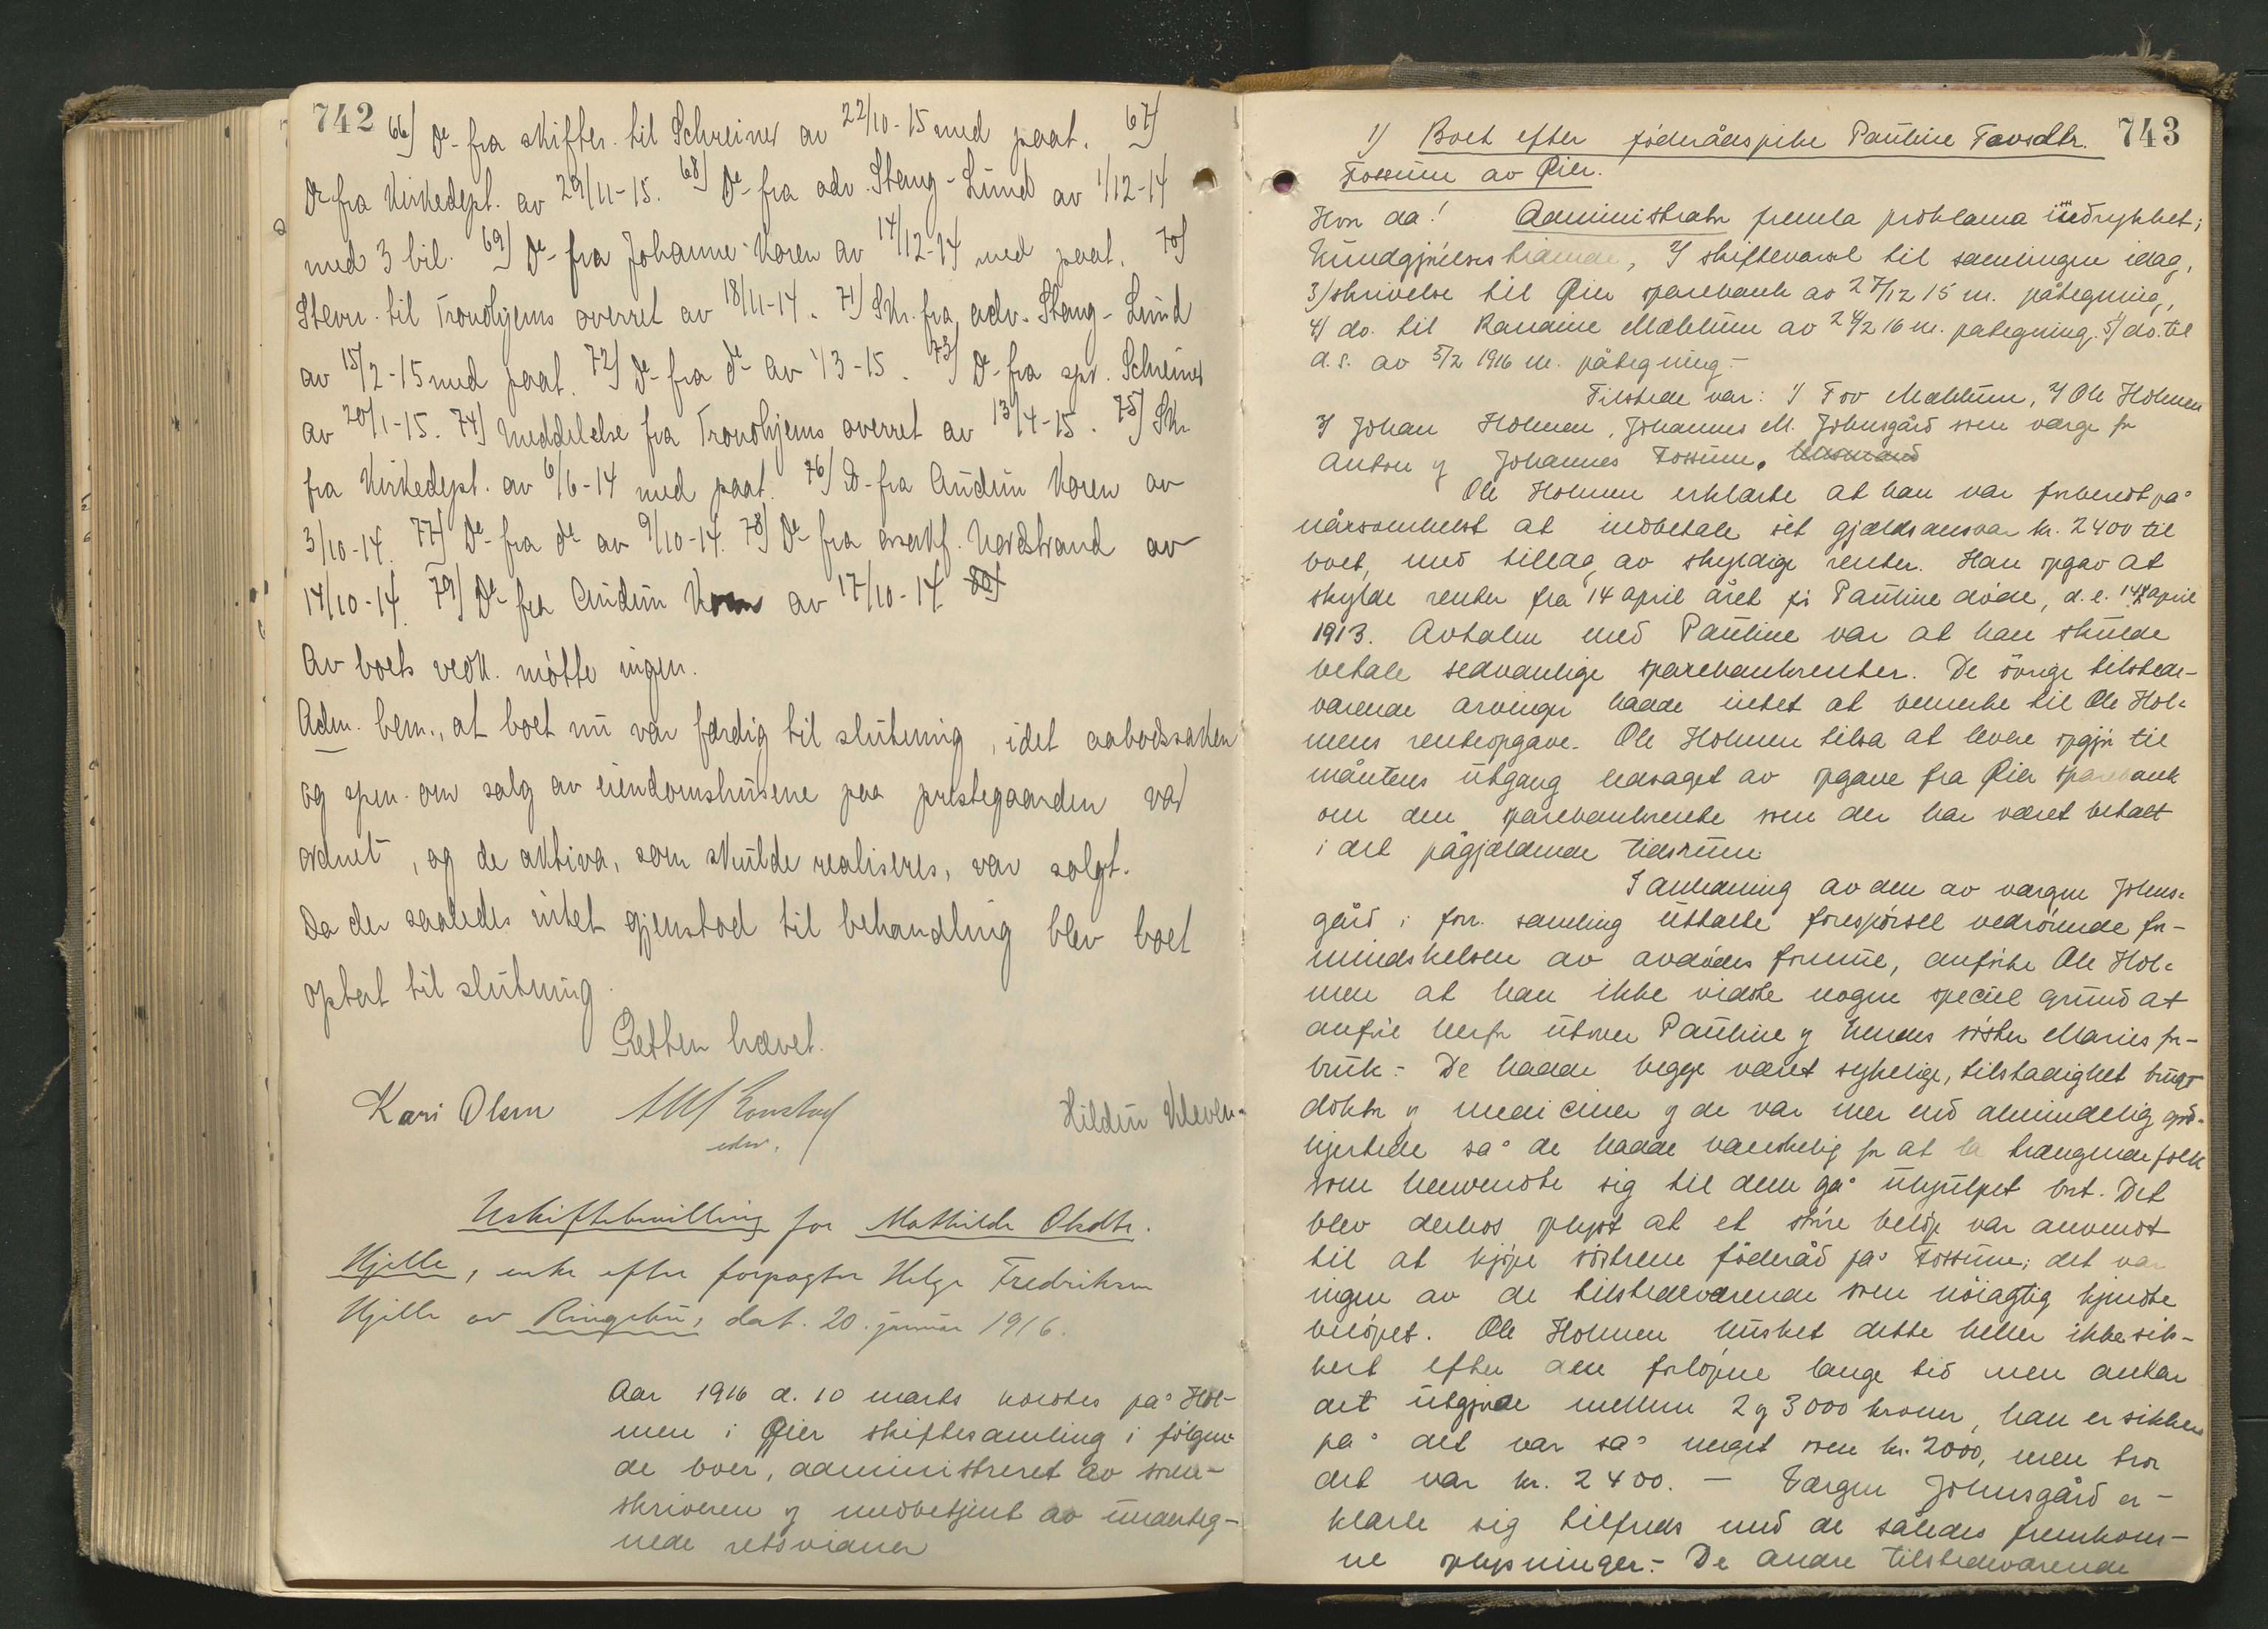 742
66) Do- fra skifter. til Schreiner av 22/10-15 med paat. 67)
Do fra Kirkedept. av 29/11-15. 68) Do- fra adv. Stang-Lund av 1/12-14
med 3 bil. 69) Do- fra Johanne Koren av 14/12-14 med paat. 70)
Stevn. til Trondhjems overret av 18/11-14. 71) Skr. fra adv. Stang-Lund
av 15/2-15 med paat. 72) Do- fra do av 1/3-15. 73) Do- fra spr. Schreiner
av 20/1-15. 74) Meddelelse fra Trondhjems overret av 13/4-15. 75) Skr.
fra Kirkedept. av 6/6-14 med paat. 76) Do- fra Audun Koren av
3/10-14. 77) Do- fra do av 9/10-14. 78) Do- fra Nordstrand av
14/10-14. 79) Do- fra Audun Koren av 17/10-14. 80)
Av boets vedk. møtte ingen.
Adm. bem., at boet nu var færdig til slutning, idet aabodssaken
og spm. om salg av eiendomshusene paa prestegaarden var
ordnet, og de aktiva, som skulde realiseres, var solgt.
Da der saaledes intet gjenstod til behandling blev boet
optat til slutning.
Retten hævet.
Kari Olsen
edsv.
Hildur Kleven
Uskiftebevilling for Mathilde Olsdtr.
Hjelle, enke efter forpagter Helge Fredriksen
Hjelle av Ringebu, dat. 20. januar 1916.
Aar 1916 d. 10 marts holdtes på Hol-
men i Øier skiftesamling i følgen-
de boer, administreret av soren-
skriveren og medbetjent av underteg-
nede retsvidner
743
1) Boet efter föderådspike Pauline Tovsdtr.
Fossum av Øier.
Hvor da! Administrator fremla proklama indrykket i
kundgjörelsestidende, 2) skiftevarsel til samlingen idag,
3) skrivelse til Øier sparebank av 27/12 15 m. påtegning,
4) do. til Randine Mæhlum av 24/2 16 m. påtegning. 5) do. til
d.s. av 5/2 1916 m. påtegning.-
Tilstede var: 1) Tov Mæhlum, 2) Ole Holmen
3) Johan Holmen, Johannes M. Johnsgård som værge for
Anton og Johannes Fossum.
Ole Holmen erklærte at han var forberedt på
nårsomhelst at indbetale sit gjældsansvar kr. 2400 til
boet, med tillæg av skyldige renter. Han opgav at
skylde renter fra 14 april året för Pauline döde, d.e. 14/4 april
1913. Avtalen med Pauline var at han skulde
betale sedvanlige sparebankrenter. De övrige tilstede-
værende arvinger hadde intet at bemerke til Ole Hol-
mens renteopgave. Ole Holmen tilsa at levere opgjör til
måntens utgang ledsaget av opgave fra Øier sparebank
om den sparebankrente som der har været betalt
i det pågjældende tidsrum.
I anledning av den av værgen Johns-
gård i forr. samling uttalte forespörsel vedrörende for-
mindskelsen av avdödes formue, anförte Ole Hol-
men at han ikke vidste nogen speciel grund at
anföre herfor utover Pauline og hendes söster Maries for-
bruk.- De hadde begge været sykelige, tilstadighet brugt
doktor og mediciner og de var mer end almindelig god-
hjertede så de hadde vanskelig for at la trængende folk
som henvendte sig til dem gå uhjulpet bort. Det
blev derhos oplyst at et större belöp var anvendt
til at kjöpe söstrene föderåd på Fossum; det var
ingen av de tilstedeværende som nöiagtig kjendte
belöpet. Ole Holmen husket dette heller ikke sik-
kert efter den forlöpne lange tid men antar
det utgjorde mellem 2 og 3000 kroner, han er sikker
på det var så meget som kr. 2000, men tror
det var kr. 2400. — Værgen Johnsgård er-
klærte sig tilfreds med de således fremkom-
ne oplysninger.- De andre tilstedeværende